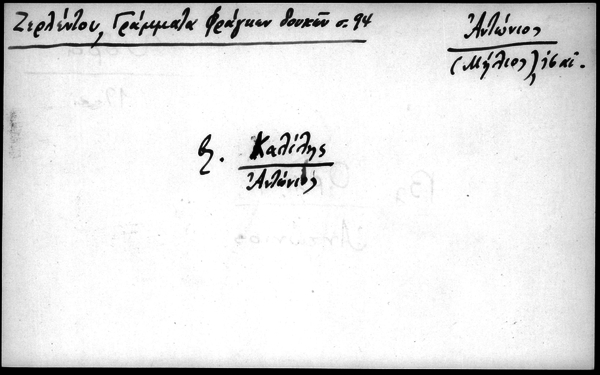 Ζερλέντου, Γράμματα Φράγκων δουκῶν σ. 94
Ἀντώνιος
(Μήλιος), 16 αἰ.
βλ. Καλέλης
Ἀντώνιος